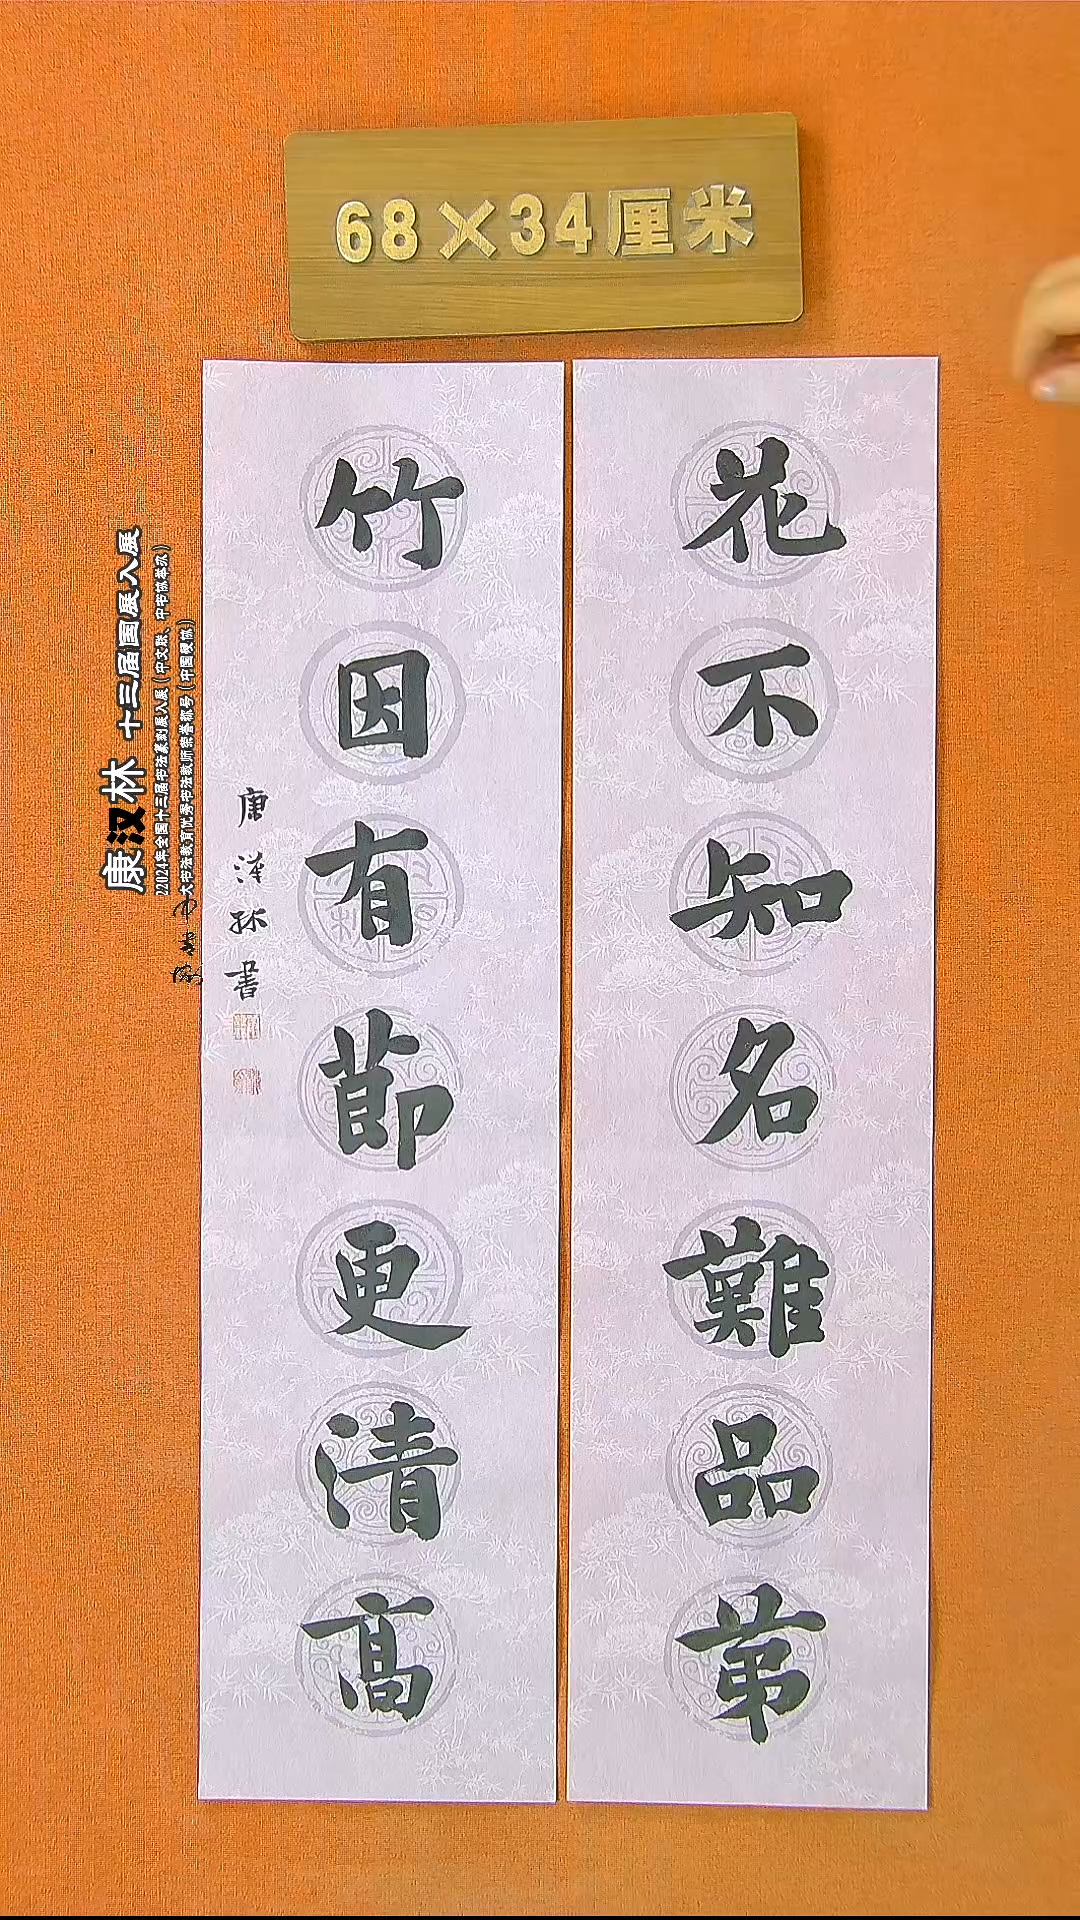 68×34厘米
花不知名難品第
竹因有節更清高
康漢林書
康汉林 十三届国展入展
22024年全国十三届书法篆刻展入展(中文联、中书协举办)
大书法教育优秀书法教师荣誉称号(中国硬协)